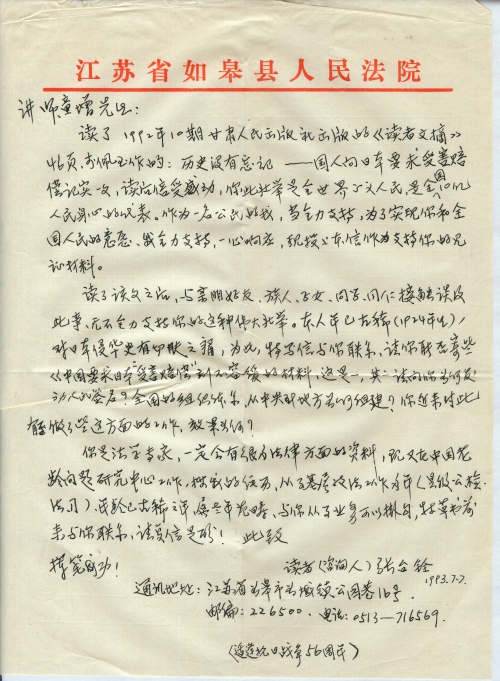 江苏省如皋县人民法院
讲师童增先生:
读了1992年10期甘肃人民出版社出版的《读者文摘》
46页,的:历史没有忘记——国人向日本要求受害赔
偿记实一文,读后倍受感动,你此壮举是全世界人民,是全国10亿
人民身心的代表。作为一名公民的我,当全力支持,为了实现你和全
国人民的意愿、我全力支持,一心响应,现投上本信作为支持你的见
证材料。
读了该文之后,与亲朋好友、族人、子女、同学、同仁接触谈及
此事、无不全力支持你的这种伟大壮举。本人年已古稀(1924年生),
对日本侵华史有切肤之痛,为此,特写信与你联系,请你能否寄些
《中国要求日本受害赔偿刻不容缓》的材料,这是一,其二请问你为何发
动人的签名?全国的组织体系,从中央到地方如何组建?你近来对此
做了些这方面的工作,效果如何?
你是法学专家,一定会有很多法律方面的资料,现又在中国老
龄问题研究中心工作,我的经历,从事政法工作多年(县级公检
法司)。年龄已古稀之年,与你从事业务可以挂勾,特草书前
来与你联系,请复信是盼!此致
撰笔成功!
读者(咨询人)张合铨
1993.7.7.
通讯地址:江苏省如皋市如城镇公园巷16号
邮编:226500.电话:0513—716569.
(适逢抗日战争56周年)